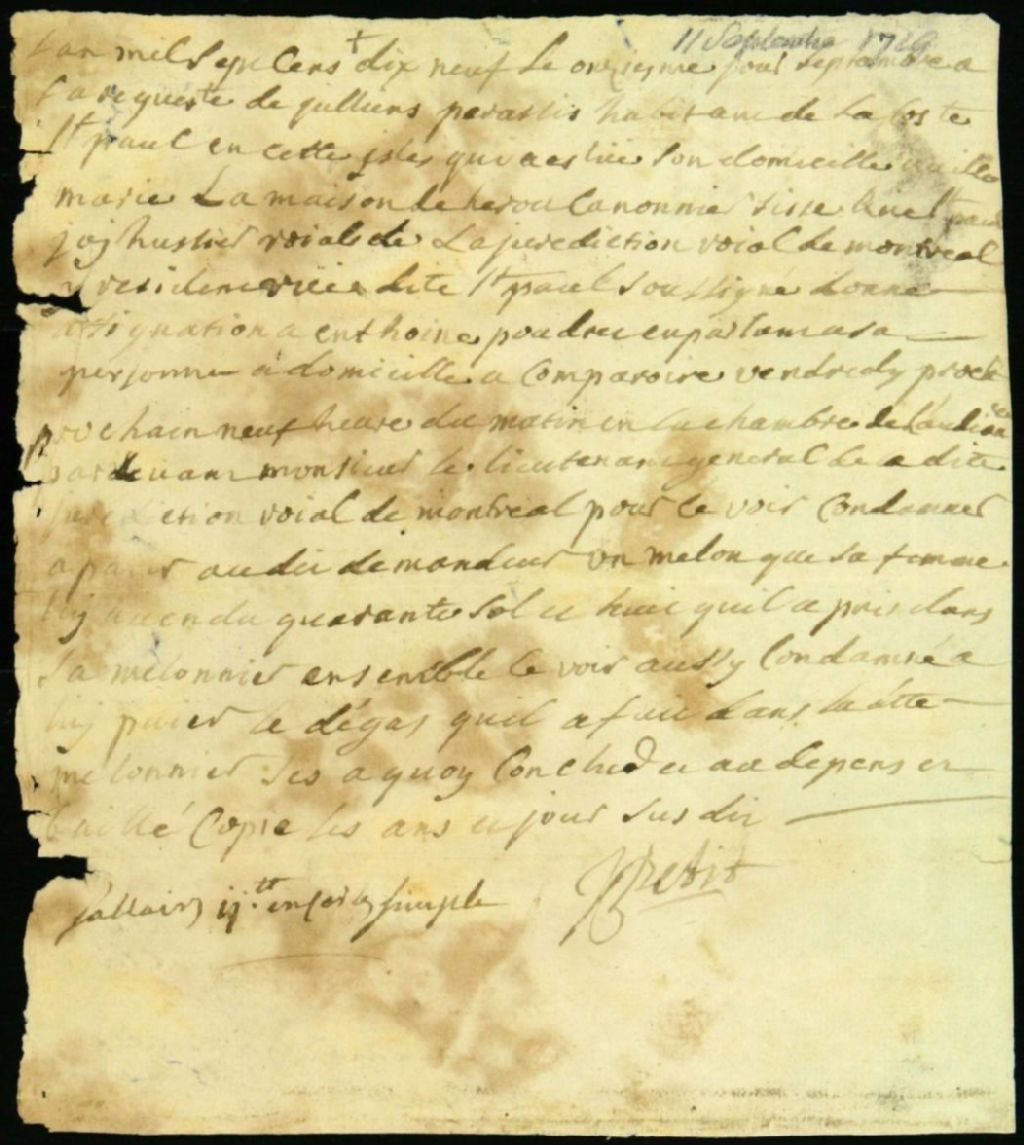 11 Septembre 1719
L'an mil sept Cens dix neuf Le onziesme jour septembre a
La requeste de julliens perastis habitant de La Coste
St paul en cette jsle qui a eslue son domicille
marie La maison de herou Canonnier sisse Rue St paul
jay hussier roial de La jurediction roial de montreal
y resident rüe dite St paul soussigné donné
assignation a enthoine poudret en parlant a sa
personne a domicille a Comparoire vendredy proch
prochain neuf heure du matin en la chambre de L'audience
pardevant monsieur le lieutenant general de la dite
jurediction roial de montreal pour ce voir Condamner
a paier audit demandeur un melon que sa femme
luy a vendu quarante sol et huit quil a pris dans
sa melonnier ensemble ce voir aussy Condamné a
luy paier le dégas quil a fait dans ladite
melonnier a quoy Conclud et au depens et
baillé Copie les ans et jour sus dit
sallair simple
Petit